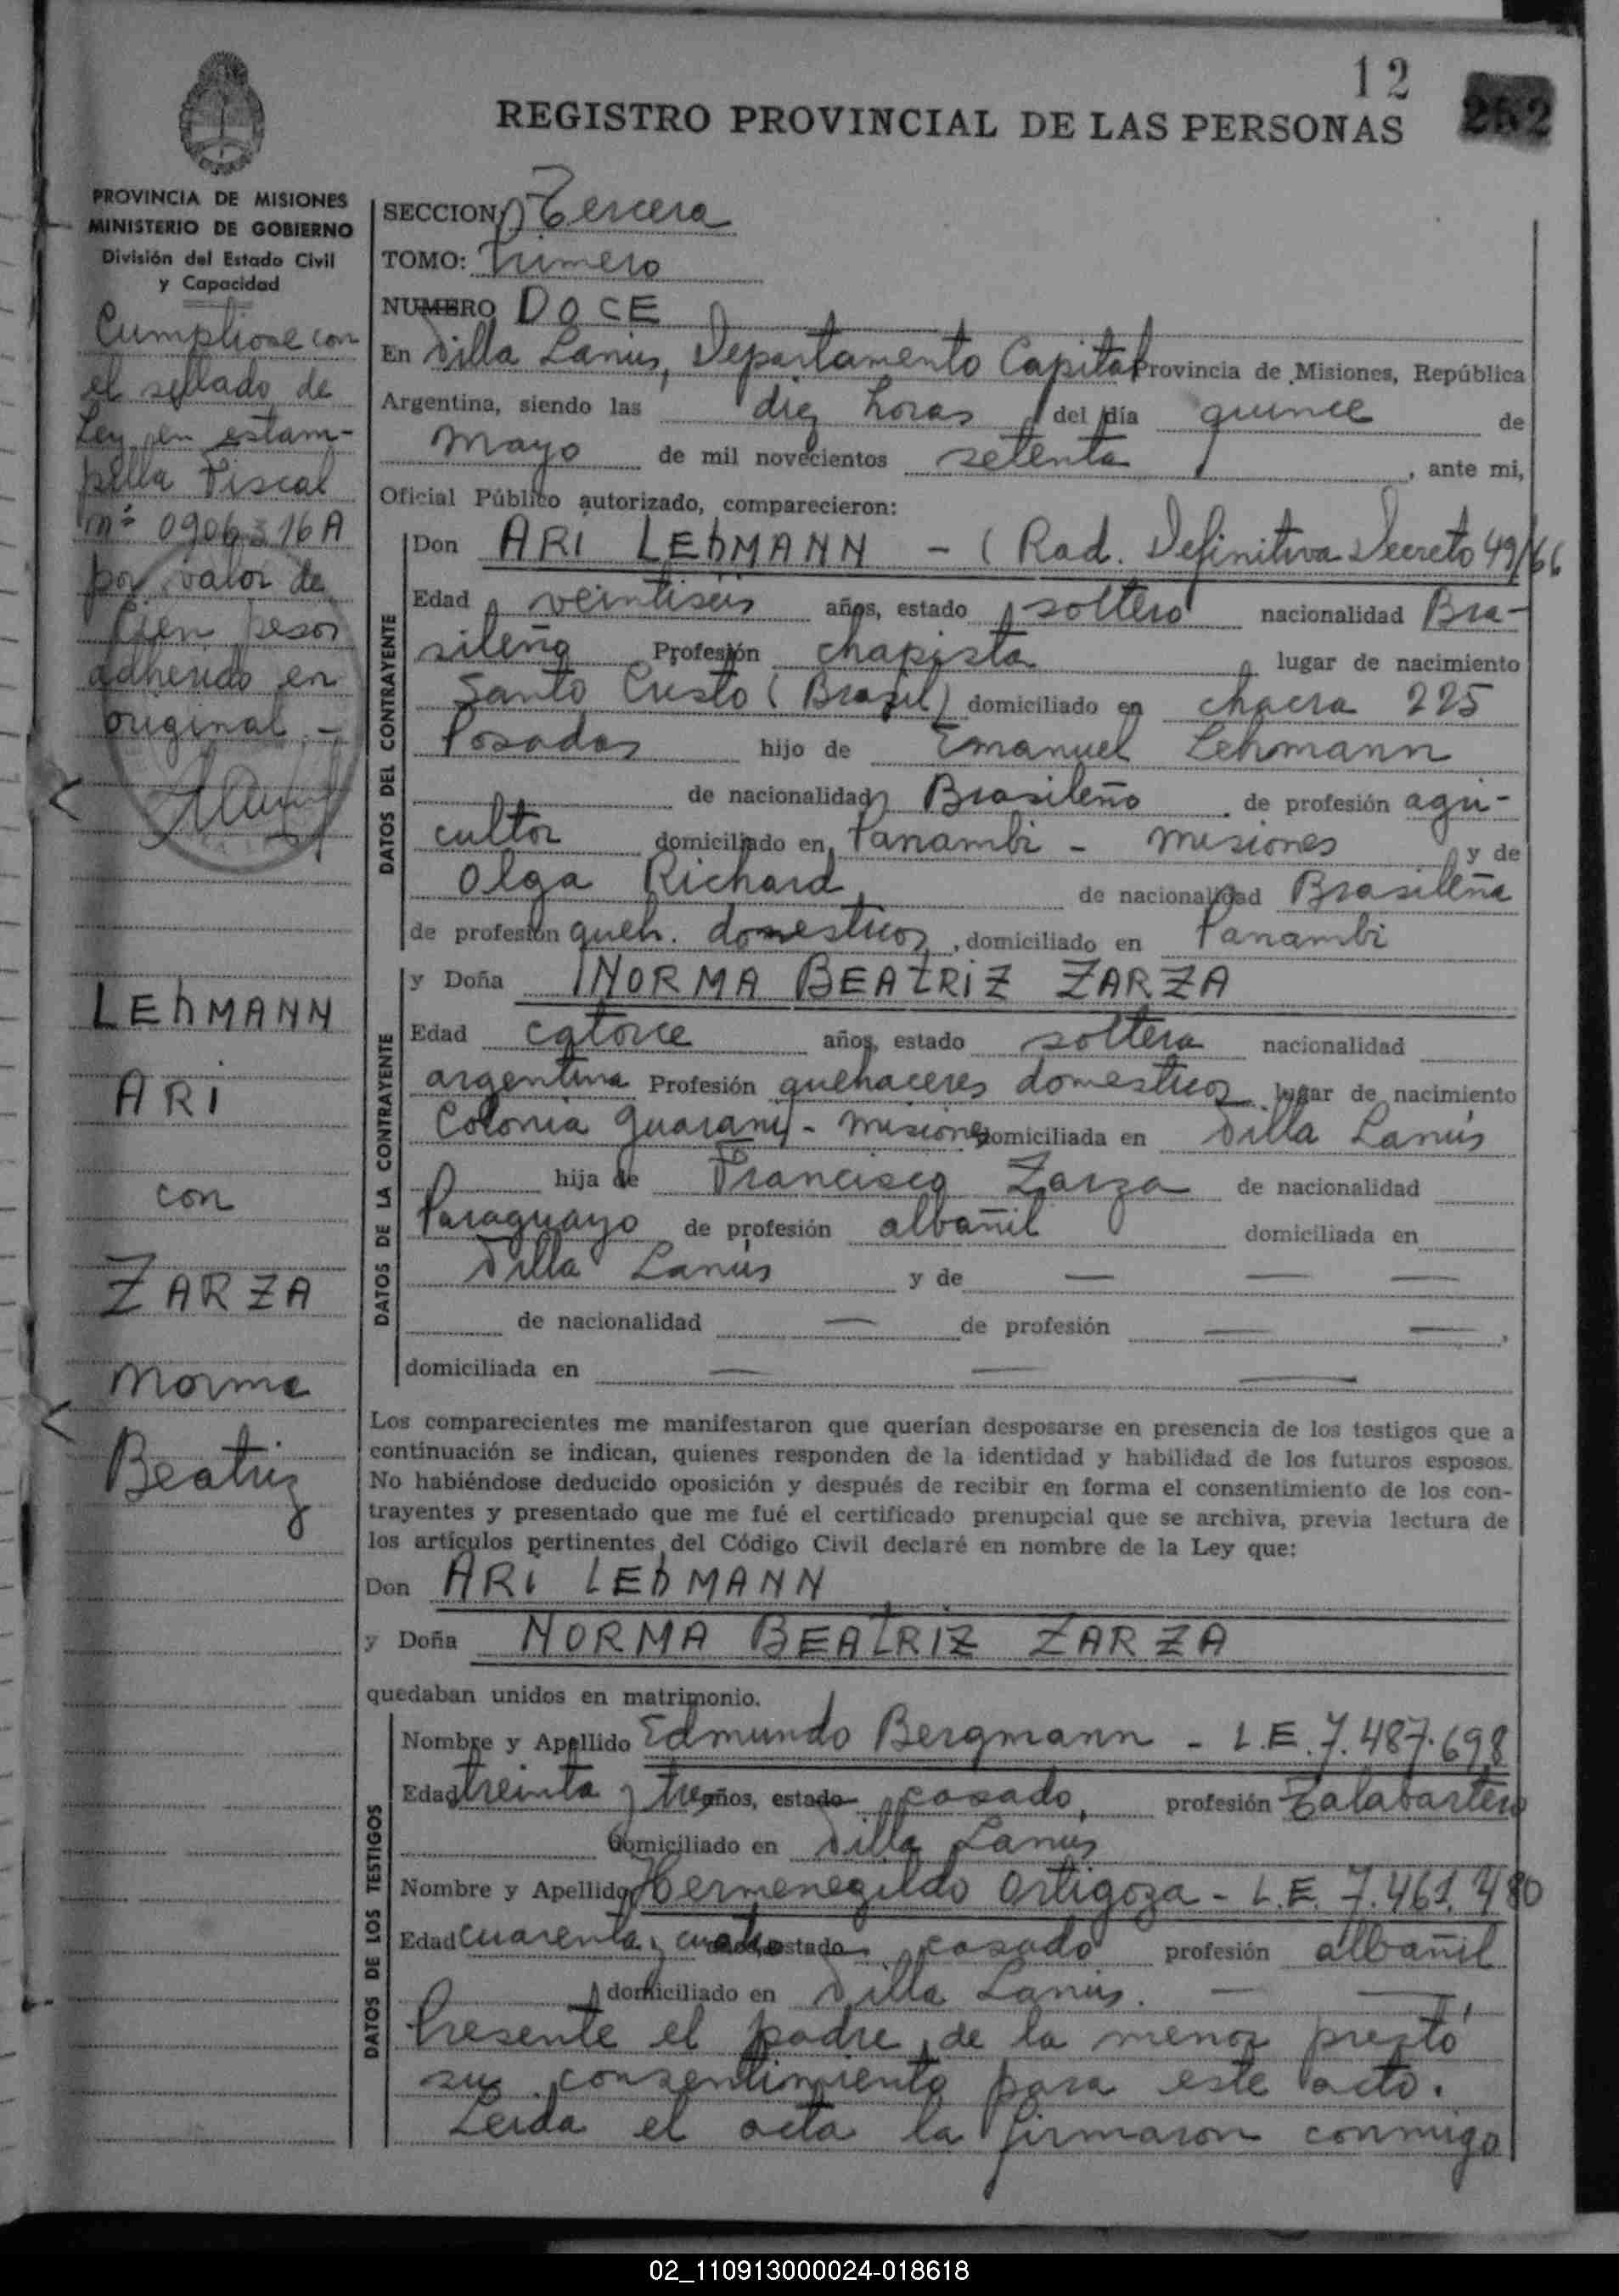 12
252
REGISTRO PROVINCIAL DE LAS PERSONAS
PROVINCIA DE MISIONES
MINISTERIO DE GOBIERNO
División del Estado Civil
y Capacidad
Cumpliose con
el sellado de
Ley en estam-
pilla Fiscal
nº 0906316A
por valor de
Cien pesos
adherido en
original.-
LEhMANN
ARI
con
ZARZA
Norma
Beatriz
SECCION Tercera
TOMO: Primero
NUMERO DOCE
En Villa Lanús, Departamento Capital Provincia de Misiones, República
Argentina, siendo las diez horas del día quince de
Mayo de mil novecientos setenta, ante mi,
Oficial Público autorizado, comparecieron:
DATOS DEL CONTRAYENTE
Don ARI LEhMANN - (Rad. Definitiva Decreto 49/66
Edad veintiseis años, estado soltero nacionalidad Bra-
sileña Profesión chapista lugar de nacimiento
Santo Cristo (Brazil) domiciliado en chacra 225
Posadas hijo de Emanuel Lehmann
de nacionalidad Brasileño de profesión agri-
cultor domiciliado en Panambi - Misiones y de
Olga Richard de nacionalidad Brasileña
de profesión queh. domesticos, domiciliado en Panambi
DATOS DE LA CONTRAYENTE
y Doña NORMA BEATRIZ ZARZA
Edad catorce años, estado soltera nacionalidad
argentina Profesión quehaceres domesticos lugar de nacimiento
Colonia Guarany - Misiones domiciliada en Villa Lanús
hija de Francisco Zarza de nacionalidad
Paraguayo de profesión albañil domiciliada en
Villa Lanús y de — — —
de nacionalidad — de profesión — —,
domiciliada en — — —
Los comparecientes me manifestaron que querían desposarse en presencia de los testigos que a
continuación se indican, quienes responden de la identidad y habilidad de los futuros esposos.
No habiéndose deducido oposición y después de recibir en forma el consentimiento de los con-
trayentes y presentado que me fué el certificado prenupcial que se archiva, previa lectura de
los artículos pertinentes del Código Civil declaré en nombre de la Ley que:
Don ARI LEhMANN
y Doña NORMA BEATRIZ ZARZA
quedaban unidos en matrimonio.
DATOS DE LOS TESTIGOS
Nombre y Apellido Edmundo Bergmann - L.E. 7.487.698
Edad treinta y tres años, estado casado, profesión Talabartero
domiciliado en Villa Lanús
Nombre y Apellido Hermenegildo Ortigoza - L.E. 7.461.480
Edad cuarenta y cuatro años, estado casado profesión albañil
domiciliado en Villa Lanús. — —,
Presente el padre de la menor prestó
su consentimiento para este acto.
Leida el acta la firmaron conmigo
02_110913000024-018618